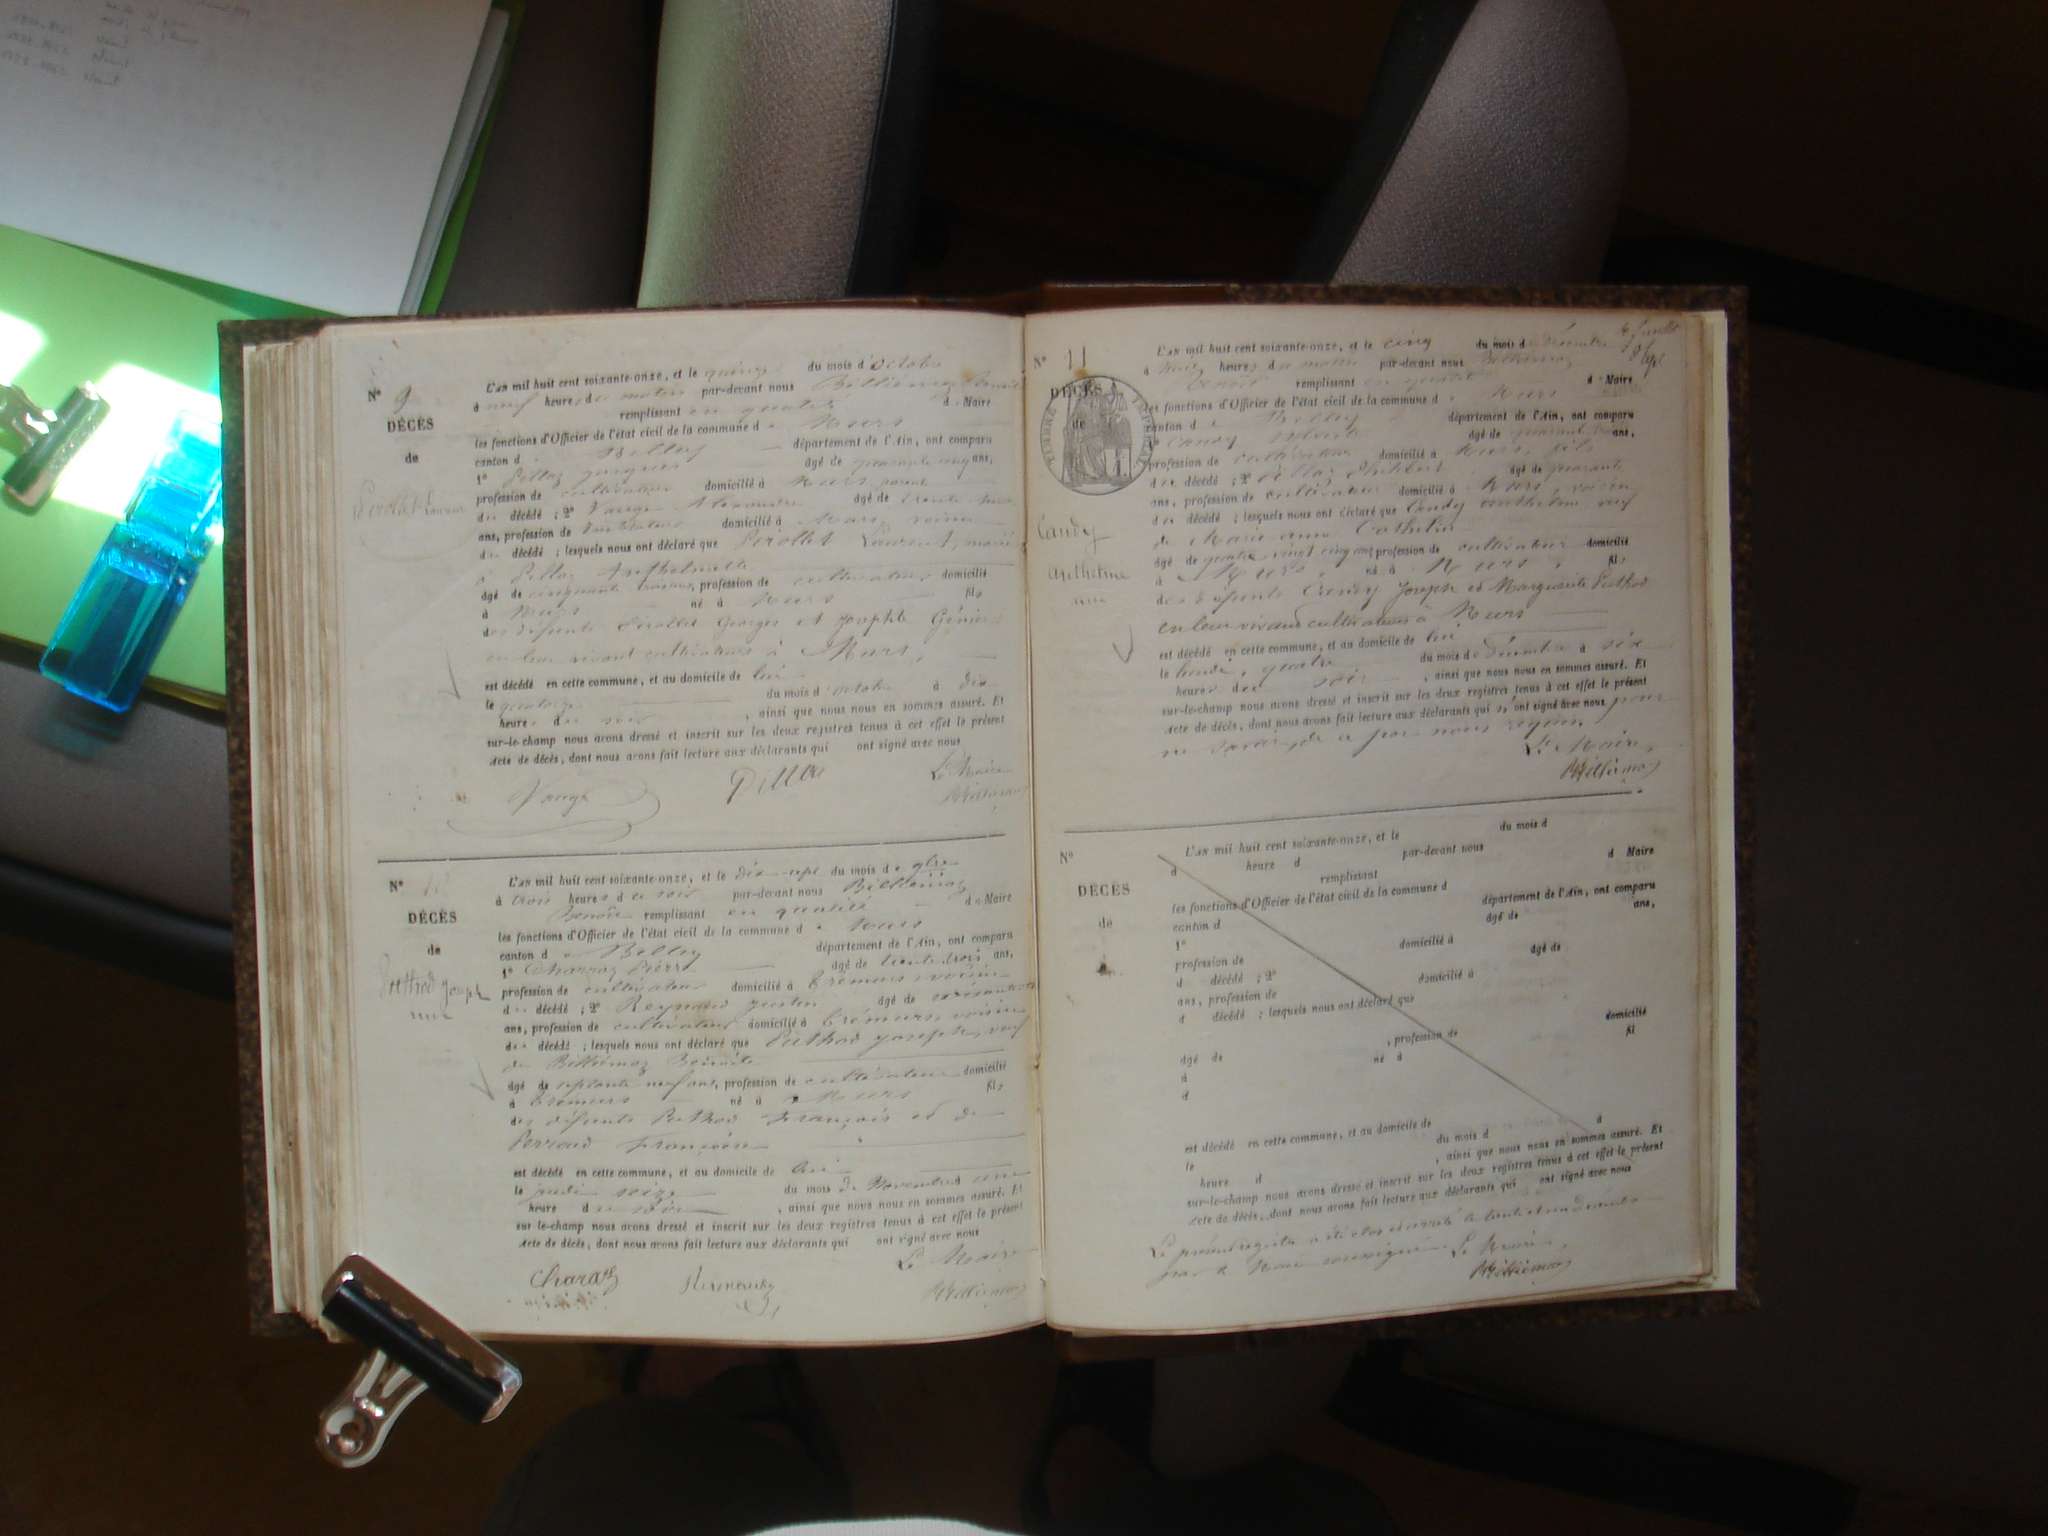 N° 9
DÉCÈS
de
Perollet Laurent
L'an mil huit cent soixante-onze, et le quinze du mois d'octobre
à neuf heures du matin par-devant nous Billiémaz Benoit
remplissant en qualité de Maire
les fonctions d'Officier de l'état civil de la commune de Murs
canton de Belley département de l'Ain, ont comparu
1° Pellaz âgé de quarante cinq ans,
profession de cultivateur domicilié à Murs, parent
du décédé ; 2° Vauge Alexandre âgé de trente
ans, profession de domicilié à Murs, voisin
du décédé ; lesquels nous ont déclaré que Perollet Laurent, marié
à Pellaz Anthelmette
âgé de cinquante ans, profession de cultivateur domicilié
à Murs né à Murs fils
des défunts Perollet Georges et Josephte
en leur vivant cultivateurs à Murs,
est décédé en cette commune, et au domicile de lui
le quatorze du mois d'octobre à dix
heures du soir, ainsi que nous nous en sommes assuré. Et
sur-le-champ nous avons dressé et inscrit sur les deux registres tenus à cet effet le présent
acte de décès, dont nous avons fait lecture aux déclarants qui ont signé avec nous
Le Maire
Vauge Billiémaz
N° 10
DÉCÈS
de
Puthod Joseph
L'an mil huit cent soixante-onze, et le dix-sept du mois de 9bre
à trois heures du soir par-devant nous Billiémaz
Benoit remplissant en qualité de Maire
les fonctions d'Officier de l'état civil de la commune de Murs
canton de Belley département de l'Ain, ont comparu
1° Charraz Pierre âgé de trente trois ans,
profession de cultivateur domicilié à Crémurs, voisin
du décédé ; 2° Reynaud Justin âgé de
ans, profession de cultivateur domicilié à Crémurs, voisin
du décédé ; lesquels nous ont déclaré que Puthod Joseph, veuf
de Billiémaz Benoite
âgé de septante neuf ans, profession de cultivateur domicilié
à Crémurs né à Murs fils
des défunts Puthod François et de
Perroud Françoise
est décédé en cette commune, et au domicile de lui
le jeudi seize du mois de Novembre à une
heure du soir, ainsi que nous nous en sommes assuré. Et
sur le-champ nous avons dressé et inscrit sur les deux registres tenus à cet effet le présent
acte de décès, dont nous avons fait lecture aux déclarants qui ont signé avec nous
Le Maire
Charaz Billiémaz
N° 11
DÉCÈS
de
TIMBRE IMPERIAL
Candy
Anthelme
L'an mil huit cent soixante-onze, et le cinq du mois de Décembre
à huit heures du matin par-devant nous Billiémaz
Benoit remplissant en qualité de Maire
les fonctions d'Officier de l'état civil de la commune de Murs
canton de Belley département de l'Ain, ont comparu
1° Candy âgé de quarante ans,
profession de cultivateur domicilié à Murs, fils
du décédé ; 2° Pellaz Philibert âgé de quarante
ans, profession de cultivateur domicilié à Murs, voisin
du décédé ; lesquels nous ont déclaré que Candy Anthelme veuf
de Marie anne
âgé de quatre vingt cinq ans, profession de cultivateur domicilié
à Murs, né à Murs, fils
des défunts Candy Joseph et Marguerite Puthod
en leur vivant cultivateurs à Murs
est décédé en cette commune, et au domicile de lui
le lundi, quatre du mois de Décembre à six
heures du soir, ainsi que nous nous en sommes assuré. Et
sur-le-champ nous avons dressé et inscrit sur les deux registres tenus à cet effet le présent
acte de décès, dont nous avons fait lecture aux déclarants qui n'ont signé avec nous pour
ne savoir, de ce par nous requis.
Le Maire,
Billiémaz
N°
DÉCÈS
de
L'an mil huit cent soixante-onze, et le du mois d
à heure d par-devant nous
remplissant d Maire
les fonctions d'Officier de l'état civil de la commune d
canton d département de l'Ain, ont comparu
1° âgé de ans,
profession de domicilié à
d décédé ; 2° âgé de
ans, profession de domicilié à
d décédé ; lesquels nous ont déclaré que
âgé de , profession de domicilié
à né à fil
d
est décédé en cette commune, et au domicile de
le du mois d à
heure d , ainsi que nous nous en sommes assuré. Et
sur-le-champ nous avons dressé et inscrit sur les deux registres tenus à cet effet le présent
acte de décès, dont nous avons fait lecture aux déclarants qui ont signé avec nous
Le présent registre a été clos et arrêté le trente et un décembre
par le Maire soussigné. Le Maire,
Billiémaz